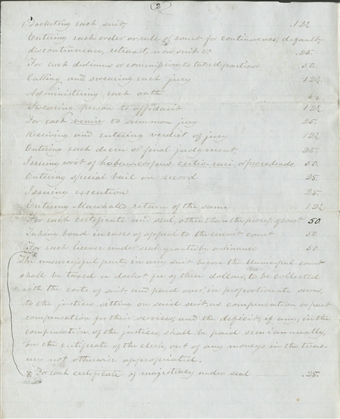 (2)
Docketing each suit .12½
Entering each order or rule of court for continuance, default,
discontinuance, retraxit, nonsuit &c .25.
For each dedimus or commission to take depositions 50.
Calling and swearing each jury 12½
Administering each oath
Swearing person to affidavit 12½
For each venire to summon jury 25.
Receiving and entering verdict of jury 12½
Entering each decree or final judgement 25.
Issuing writ of habeas corpus, or procedendo. 50.
Entering special bail on record 25.
Issuing execution 25.
Entering Marshall's return of the same 12½
For each certificate and seal, other than the process of court 50
Taking bond in cases of appeal to the circuit court 50
For each license under seal granted by ordinance 50
The unsuccessful party in any suit before the Municipal court
shall be taxed a docket fee of three dollars, to be collected
with the costs of suit and paid over, in proportionate sums,
to the justices sitting on said suit, as compensation or part
compensation for their services, and the deficit, if any, in the
compensation of the justices shall be paid semi-annually,
on the certificate of the clerk, out of any moneys in the treas-
ury not otherwise appropriated.
For each certificate of magistracy under seal .25.